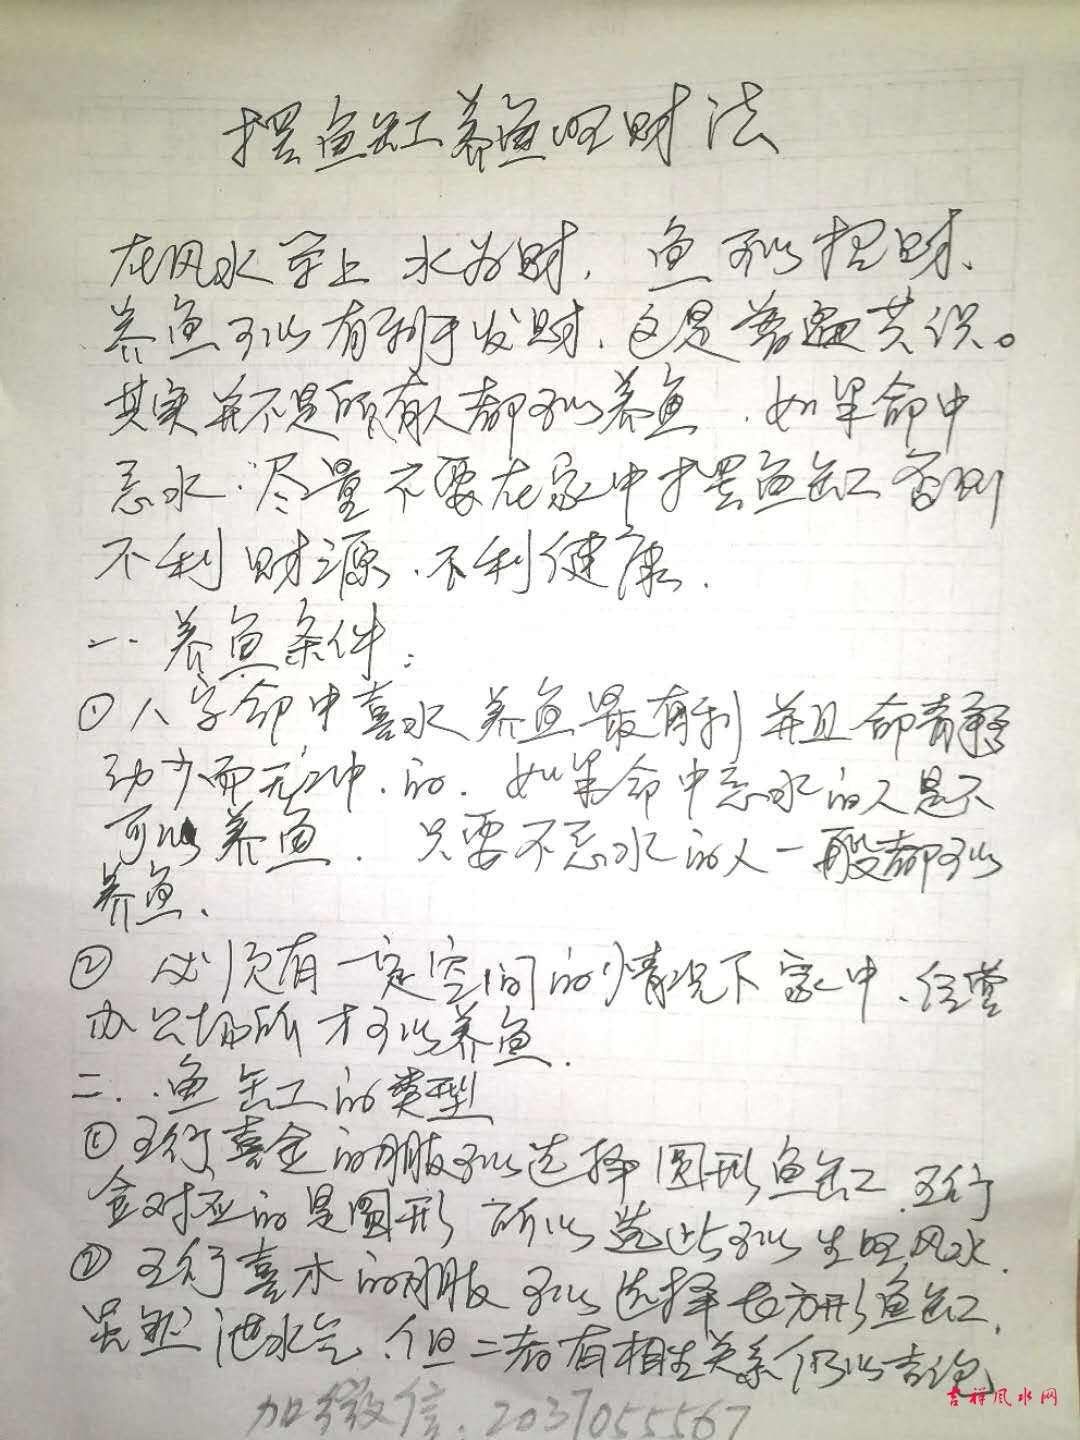 摆鱼缸养鱼旺财法
在风水学上 水为财. 鱼可以招财、
养鱼可以有利于发财、这是普遍共识。
其实并不是所有人都可以养鱼、如果命中
忌水、尽量不要在家中摆鱼缸 否则
不利财源、不利健康.
一. 养鱼条件:
① 八字命中喜水 养鱼最有利 并且命青静
动少而无冲.的. 如果命中忌水的人是不
可以养鱼. 只要不忌水的人一般都可以
养鱼、
② 必须有一定空间的情况下 家中、经营
办公场所才可以养鱼.
二. 鱼缸的类型
① 五行喜金的朋友可以选择圆形鱼缸.五行
金对应的是圆形 所以选此可以生旺风水.
② 五行喜木的朋友 可以选择长方形鱼缸、
虽然泄水气、但二者有相生关系仍以吉论
加微信.2037055567
吉祥风水网